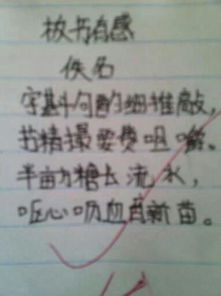 板书有感
佚名
字斟句酌细推敲，
书精撮要费咀嚼。
半亩方糖长流水，
呕心沥血育新苗。